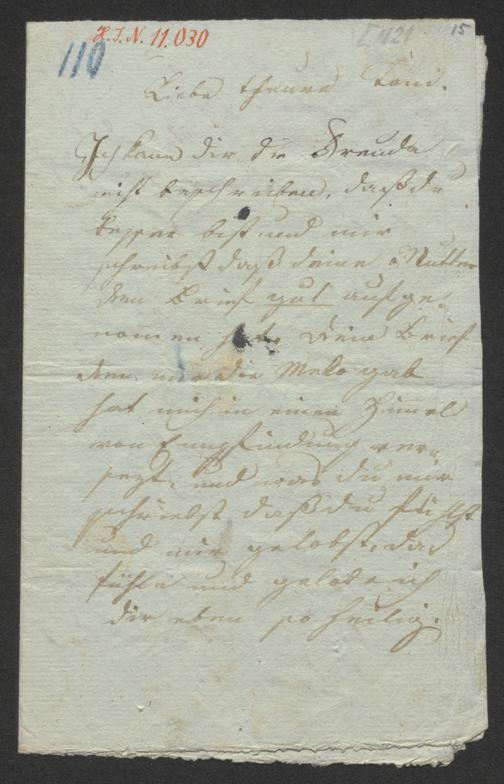 H.I.N. 11.030
I 1121
15
110
Liebe theure Toni.
Ich kann dir die Freude
nicht beschreiben, daß du
besser bist und mir
schreibst daß deine Mutter
den Brief gut aufge-
nommen hat. Dein Brief
den mir die Melo gab
hat mich in einen Himel
von Empfindung ver-
sezt, und was du mir
schriebst daß du fühlst
und mir gelobst, das
fühle und gelobe ich
dir eben so heilig.